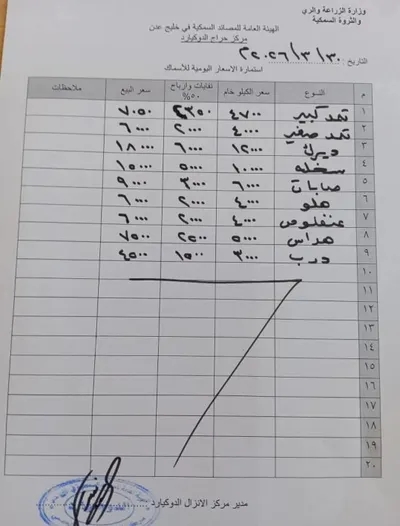 وزارة الزراعة والري
والثروة السمكية
الهيئة العامة للمصائد السمكية في خليج عدن
مركز حراج الدوكيارد
التاريخ : ٣٠ / ٣ / ٢٠٢٦م
استمارة الاسعار اليومية للأسماك
م النوع سعر الكيلو خام نفايات وارباح ٥٠% سعر البيع ملاحظات
١ ثمد كبير ٤٧٠٠ ٢٣٥٠ ٧٠٥٠
٢ ثمد صغير ٤٠٠٠ ٢٠٠٠ ٦٠٠٠
٣ ديرك ١٢٠٠٠ ٦٠٠٠ ١٨٠٠٠
٤ سخله ١٠٠٠٠ ٥٠٠٠ ١٥٠٠٠
٥ صابات ٦٠٠٠ ٣٠٠٠ ٩٠٠٠
٦ هلو ٤٠٠٠ ٢٠٠٠ ٦٠٠٠
٧ عنفلوص ٤٠٠٠ ٢٠٠٠ ٦٠٠٠
٨ هداس ٥٠٠٠ ٢٥٠٠ ٧٥٠٠
٩ درب ٣٠٠٠ ١٥٠٠ ٤٥٠٠
١٠
١١
١٢
١٣
١٤
١٥
١٦
١٧
١٨
١٩
٢٠
مدير مركز الانزال الدوكيارد